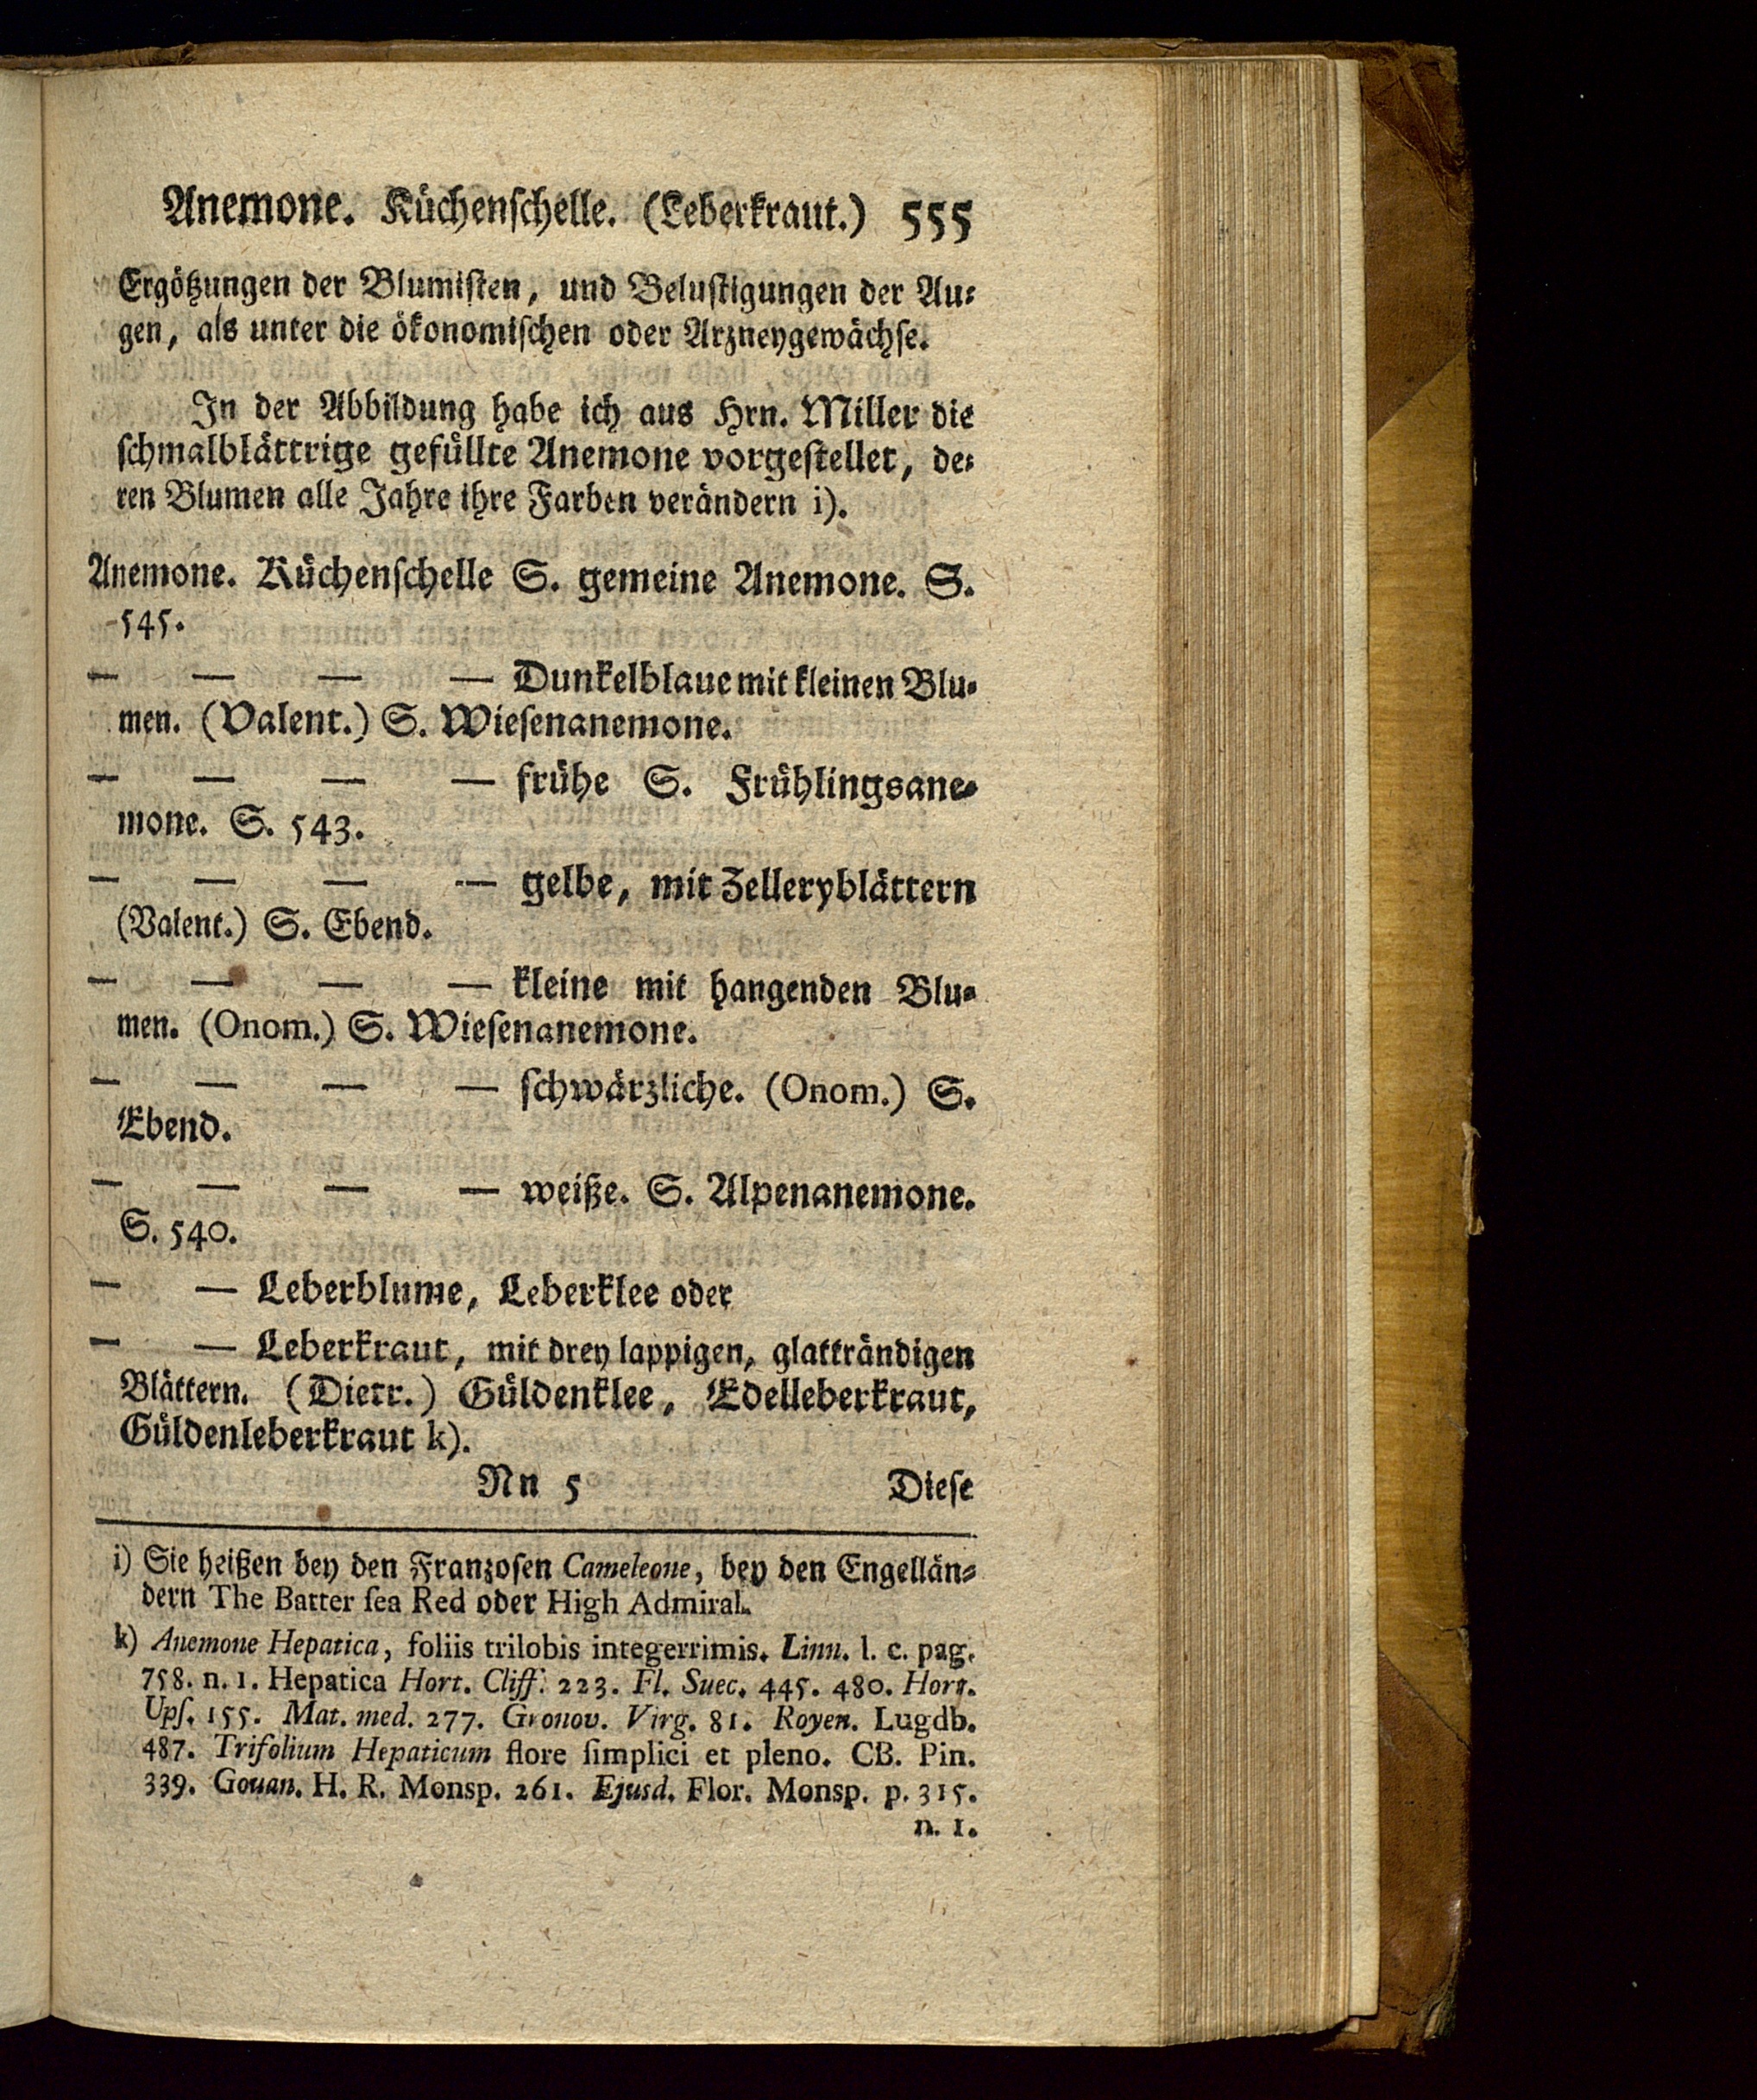 Anemone. Küchenſchelle. (Leberkraut.) 555
Ergötzungen der Blumiſten, und Beluſtigungen der Au⸗
gen, als unter die ökonomiſchen oder Arzneygewächſe.
In der Abbildung habe ich aus Hrn. Miller die
ſchmalblättrige gefüllte Anemone vorgeſtellet, de⸗
ren Blumen alle Jahre ihre Farben verändern i).
Anemone. Küchenſchelle S. gemeine Anemone. S.
545.
— — — — Dunkelblaue mit kleinen Blu⸗
men. (Valent.) S. Wieſenanemone.
— — — — frühe S. Frühlingsane⸗
mone. S. 543.
— — — — gelbe, mit Zelleryblättern
(Valent.) S. Ebend.
— — — — kleine mit hangenden Blu⸗
men. (Onom.) S. Wieſenanemone.
— — — — ſchwärzliche. (Onom.) S.
Ebend.
— — — — weiße. S. Alpenanemone.
S. 540.
— — Leberblume, Leberklee oder
— — Leberkraut, mit drey lappigen, glatträndigen
Blättern. (Dietr.) Güldenklee, Edelleberkraut,
Güldenleberkraut k).
Nn 5 Dieſe
i) Sie heißen bey den Franzoſen Cameleone, bey den Engellän⸗
dern The Batter ſea Red oder High Admiral.
k) Anemone Hepatica, foliis trilobis integerrimis. Linn. l. c. pag.
758. n. 1. Hepatica Hort. Cliff. 223. Fl. Suec. 445. 480. Hort.
Upſ. 155. Mat. med. 277. Gronov. Virg. 81. Royen. Lugdb.
487. Trifolium Hepaticum flore ſimplici et pleno. CB. Pin.
339. Gouan. H. R. Monsp. 261. Ejusd. Flor. Monsp. p. 315.
n. 1.